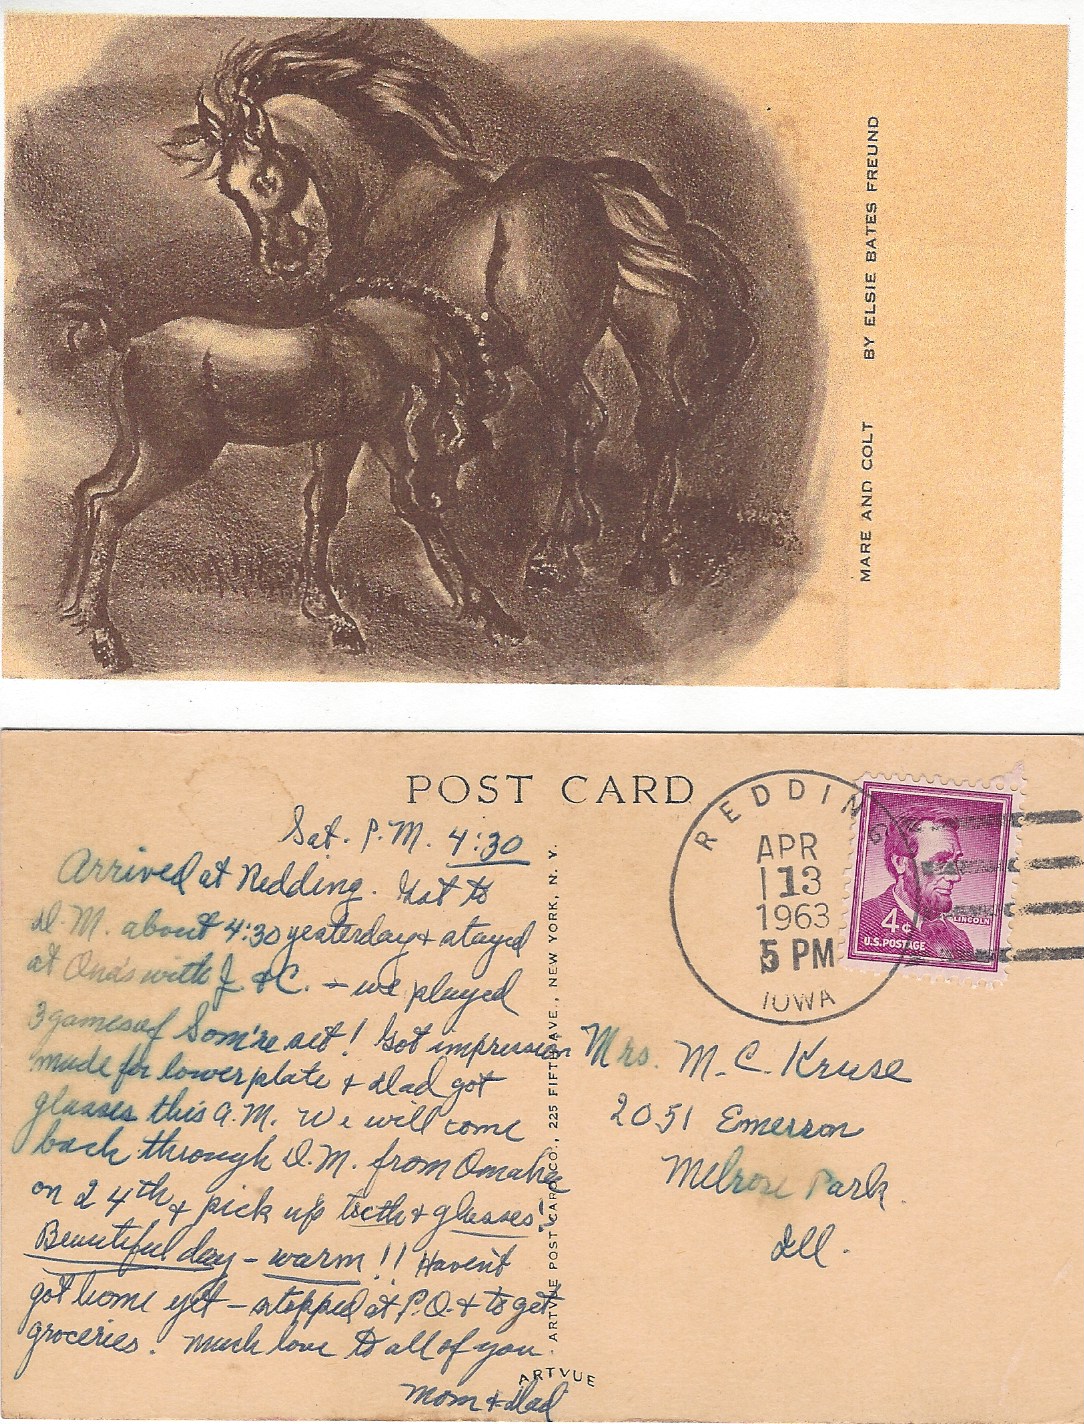 MARE AND COLT BY ELSIE BATES FREUND
POST CARD
Sat. P.M. 4:30
Arrived at Redding. Got to
D.M. about 4:30 yesterday & stayed
at Ona's with J. & C. – we played
3 games of Som're set! Got impression
made for lower plate & Dad got
glasses this A.M. We will come
back through D.M. from Omaha
on 24th & pick up teeth & glasses!
Beautiful day – warm!! Haven't
got home yet – stopped at P.O. & to get
groceries. Much love to all of you.
Mom & Dad
ARTVUE POST CARD CO., 225 FIFTH AVE., NEW YORK, N. Y.
ARTVUE
REDDING
APR
13
1963
5 PM
IOWA
LINCOLN
4¢
U.S. POSTAGE
Mrs. M. C. Kruse
2051 Emerson
Melrose Park
Ill.